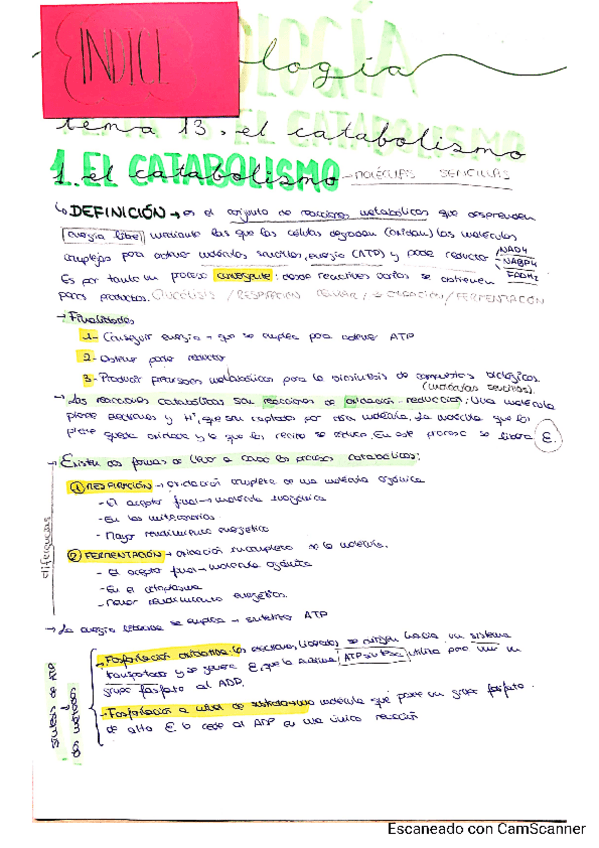 INDICE
BIOLOGÍA
tema 13. el catabolismo
1. EL CATABOLISMO - MOLÉCULAS SENCILLAS
↳ DEFINICIÓN → es el conjunto de reacciones metabólicas que desprenden
energía libre mediante las que las células degradan (oxidan) las moléculas
complejas para obtener moléculas sencillas, energía (ATP) y poder reductor
NADH
NADPH
FADH2
Es por tanto un proceso convergente: desde reactivos varios se obtienen
pocos productos. GLUCÓLISIS / RESPIRACIÓN CELULAR / OXIDACIÓN / FERMENTACIÓN
→ Finalidades
1- Conseguir energía → que se emplea para obtener ATP
2- Obtener poder reductor
3- Producir precursores metabólicos para la biosíntesis de compuestos biológicos
(moléculas sencillas).
→ Las reacciones catabólicas son reacciones de oxidación-reducción: Una molécula
pierde electrones y H+, que son captados por otra molécula. La molécula que los
pierde queda oxidada y la que los recibe se reduce. En este proceso se libera E.
→ Existen dos formas de llevar a cabo los procesos catabólicos:
diferencias
① RESPIRACIÓN → oxidación completa de una molécula orgánica
- El aceptor final → molécula inorgánica
- En las mitocondrias
- Mayor rendimiento energético
② FERMENTACIÓN → oxidación incompleta de la molécula.
- El aceptor final → molécula orgánica
- En el citoplasma
- Menor rendimiento energético.
→ La energía liberada se emplea → sintetizar ATP
síntesis de ATP
dos métodos
- Fosforilación oxidativa: los electrones liberados se dirigen hacia un sistema
transportador y se genera E, que la enzima ATP sintetasa utiliza para unir un
grupo fosfato al ADP.
- Fosforilación a nivel de sustrato: una molécula que posee un grupo fosfato
de alta E. lo cede al ADP en una única reacción
Escaneado con CamScanner